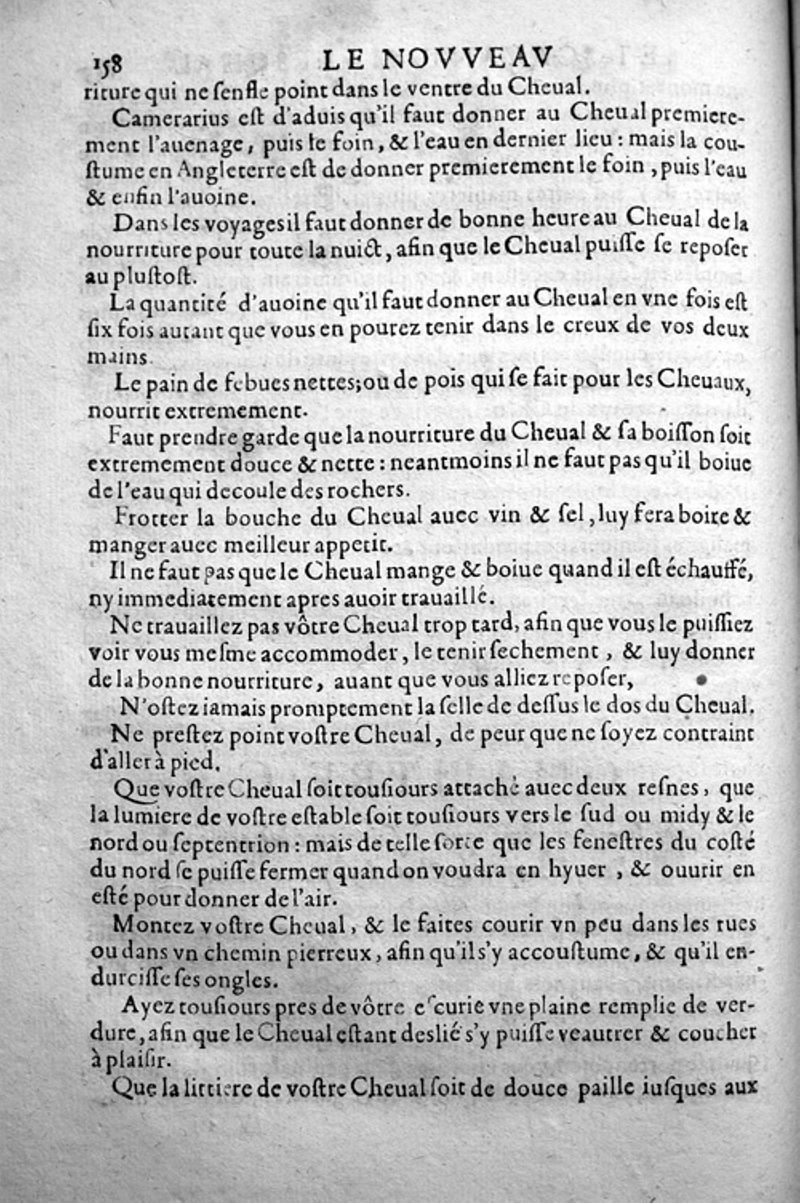 158 LE NOVVEAV
riture qui ne ſenfle point dans le ventre du Cheual.
Camerarius eſt d'aduis qu'il faut donner au Cheual premiere-
ment l'auenage, puis le foin, & l'eau en dernier lieu : mais la cou-
ſtume en Angleterre eſt de donner premierement le foin, puis l'eau
& enfin l'auoine.
Dans les voyages il faut donner de bonne heure au Cheual de la
nourriture pour toute la nuict, afin que le Cheual puiſſe ſe repoſer
au pluſtoſt.
La quantité d'auoine qu'il faut donner au Cheual en vne fois eſt
ſix fois autant que vous en pourez tenir dans le creux de vos deux
mains.
Le pain de febues nettes; ou de pois qui ſe fait pour les Cheuaux,
nourrit extremement.
Faut prendre garde que la nourriture du Cheual & ſa boiſſon ſoit
extremement douce & nette : neantmoins il ne faut pas qu'il boiue
de l'eau qui decoule des rochers.
Frotter la bouche du Cheual auec vin & ſel, luy fera boire &
manger auec meilleur appetit.
Il ne faut pas que le Cheual mange & boiue quand il eſt échauffé,
ny immediatement apres auoir trauaillé.
Ne trauaillez pas vôtre Cheual trop tard, afin que vous le puiſſiez
voir vous meſme accommoder, le tenir ſechement, & luy donner
de la bonne nourriture, auant que vous alliez repoſer,
N'oſtez iamais promptement la ſelle de deſſus le dos du Cheual.
Ne preſtez point voſtre Cheual, de peur que ne ſoyez contraint
d'aller à pied.
Que voſtre Cheual ſoit touſiours attaché auec deux reſnes, que
la lumiere de voſtre eſtable ſoit touſiours vers le ſud ou midy & le
nord ou ſeptentrion : mais de telle ſorte que les feneſtres du coſté
du nord ſe puiſſe fermer quand on voudra en hyuer, & ouurir en
eſté pour donner de l'air.
Montez voſtre Cheual, & le faites courir vn peu dans les rues
ou dans vn chemin pierreux, afin qu'il s'y accouſtume, & qu'il en-
durciſſe ſes ongles.
Ayez touſiours pres de vôtre eſcurie vne plaine remplie de ver-
dure, afin que le Cheual eſtant deslié s'y puiſſe veautrer & coucher
à plaiſir.
Que la littiere de voſtre Cheual ſoit de douce paille iuſques aux